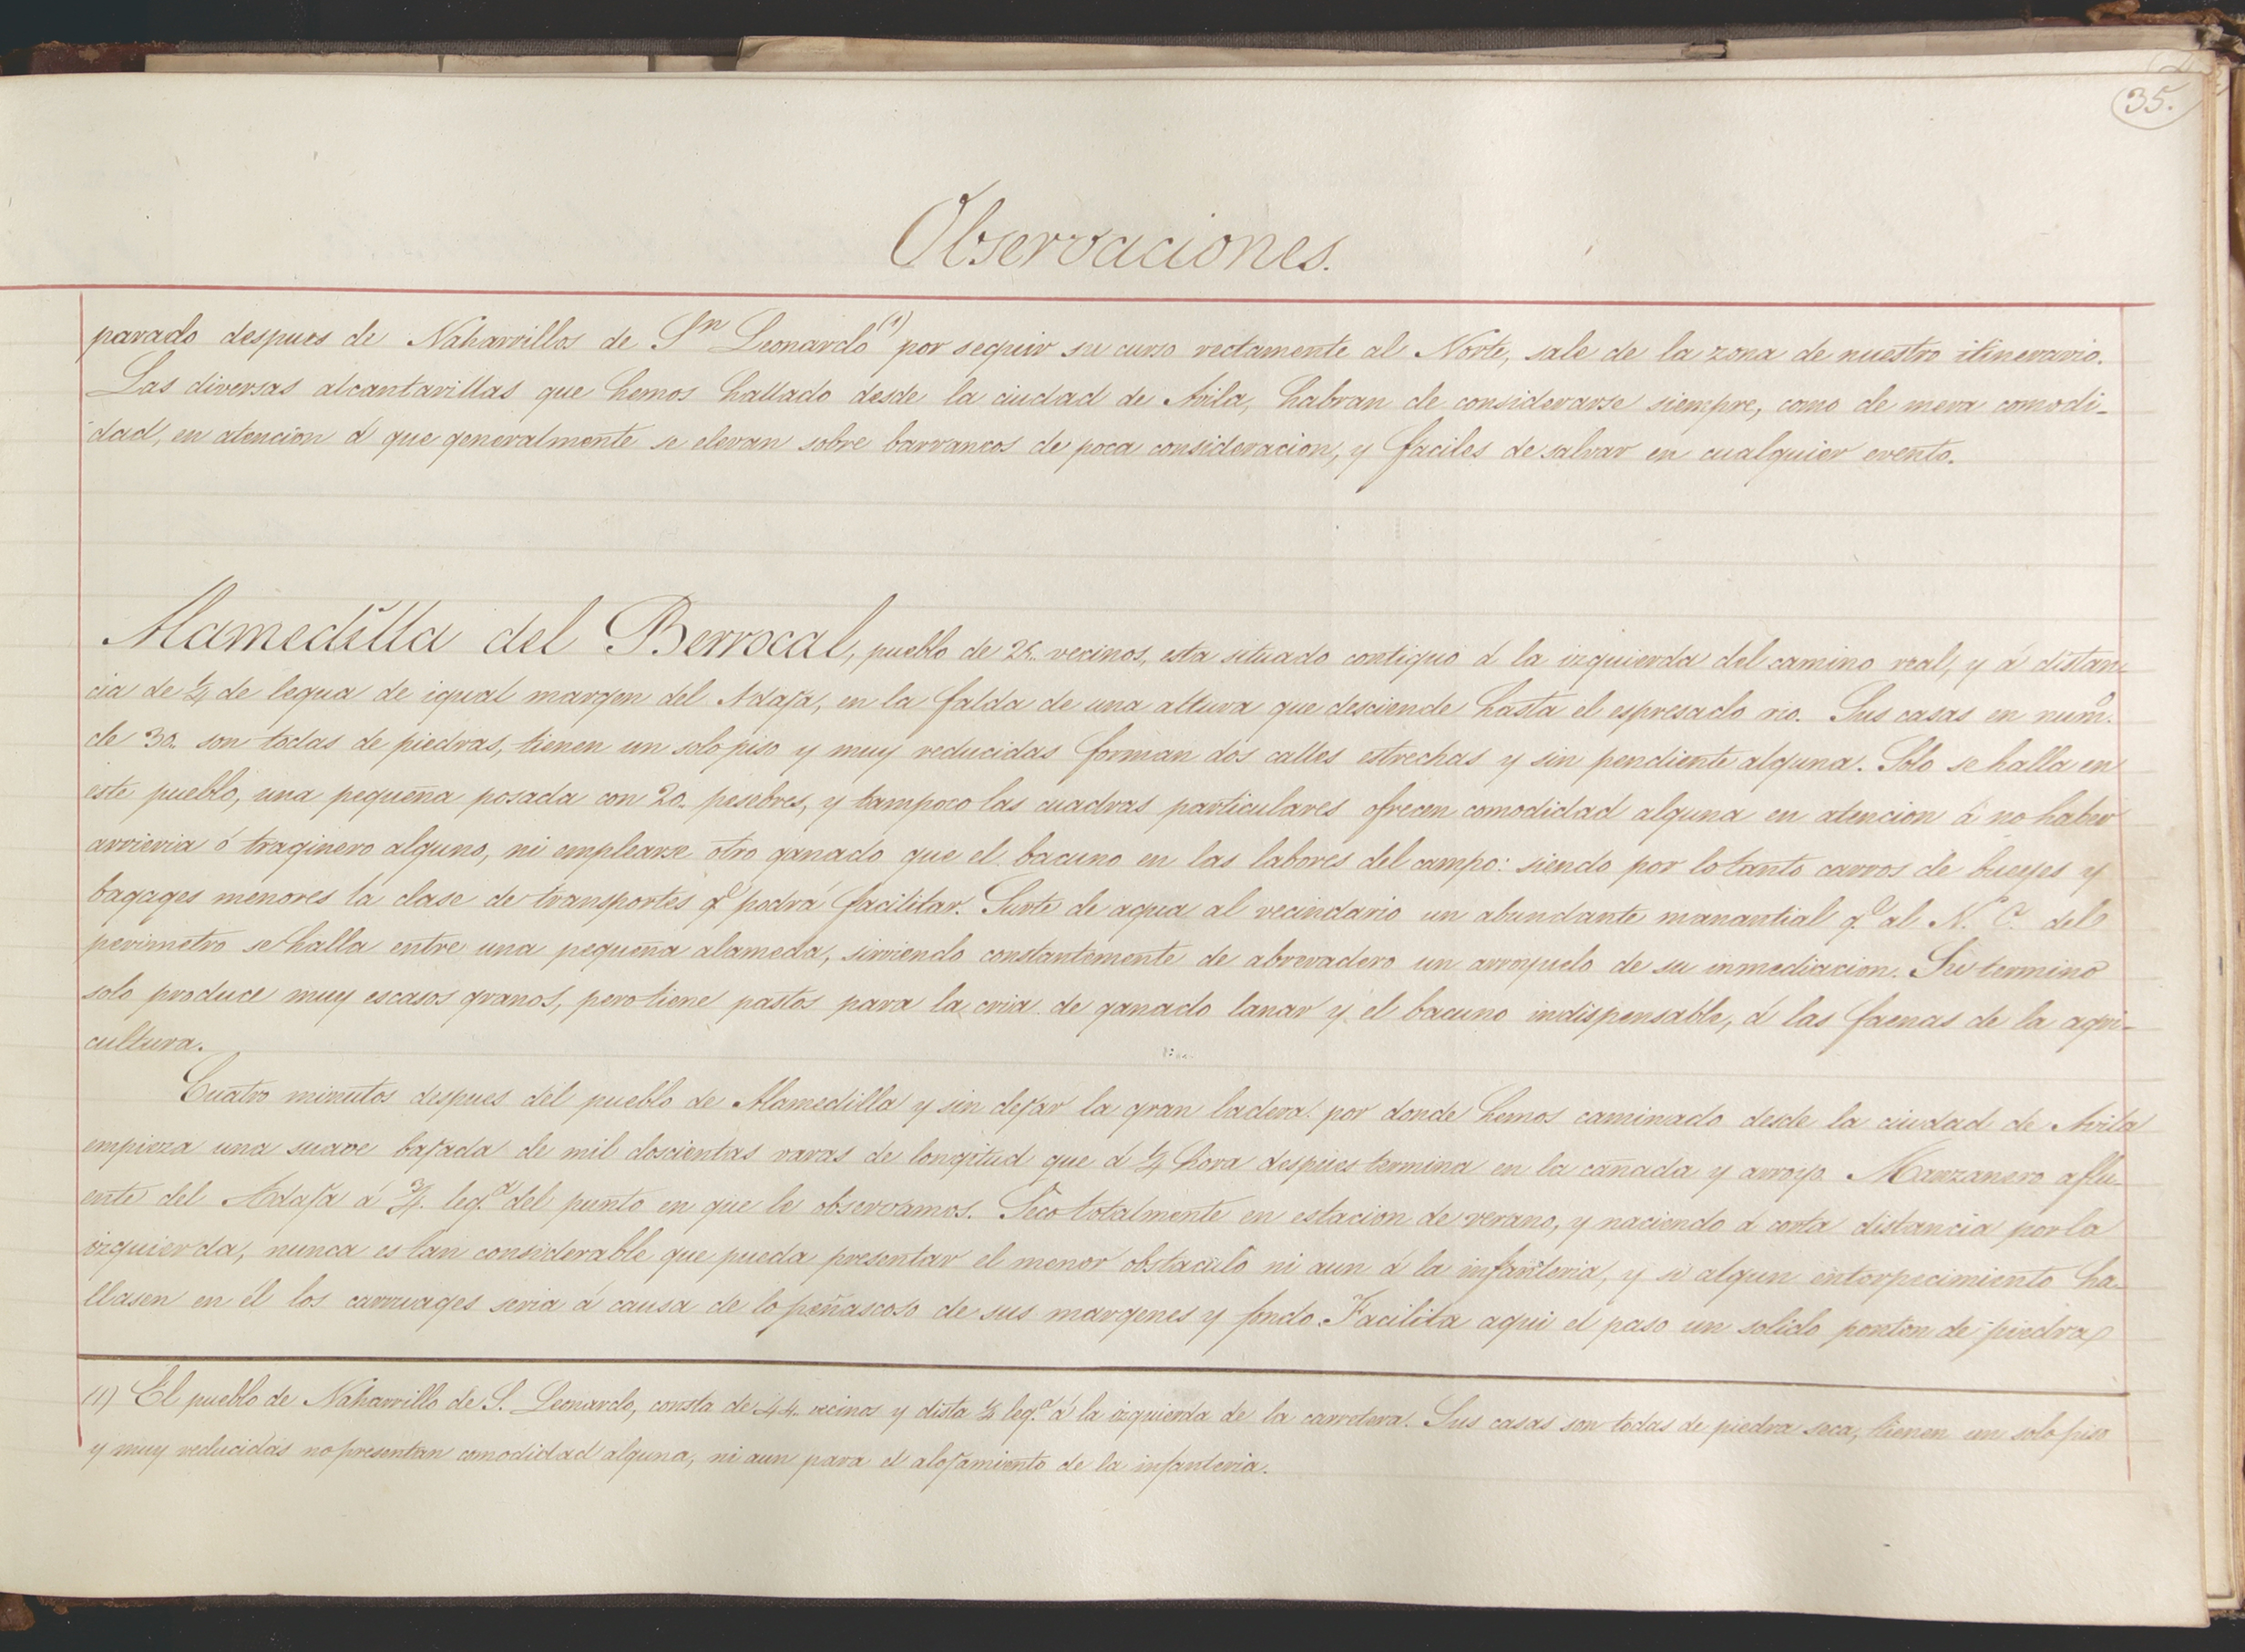 35.
Observaciones.
parado despues de Naharrillos de Sn Leonardo (1) por seguir su curso rectamente al Norte, sale de la zona de nuestro itinerario.
Las diversas alcantarillas que hemos hallado desde la ciudad de Avila, habran de considerarse siempre, como de mera comodi-
dad, en atencion á que generalmente se elevan sobre barrancos de poca consideracion, y faciles de salvar en cualquier evento.
Alamedilla del Berrocal, pueblo de vecinos, esta situado contiguo á la izquierda del camino real, y á distan-
cia de ¼ de legua de igual margen del Adaja, en la falda de una altura que desciende hasta el espresado rio. Sus casas en numo.
de 30. son todas de piedras, tienen un solo piso y muy reducidas forman dos calles estrechas y sin pendiente alguna. Solo se halla en
este pueblo, una pequeña posada con 20. pesebres, y tampoco las cuadras particulares ofrecen comodidad alguna en atencion á no haber
arrieria ó traginero alguno, ni emplearse otro ganado que el bacuno en las labores del campo: siendo por lo tanto carros de bueyes y
bagages menores la clase de transportes qe podrá facilitar. Surte de agua al vecindario un abundante manantial qe al N. O. del
perimetro se halla entre una pequeña alameda, sirviendo constantemente de abrevadero un arroyuelo de su inmediacion. Su termino
solo produce muy escasos granos, pero tiene pastos para la cria de ganado lanar y el bacuno indispensable, á las faenas de la agri-
cultura.
Cuatro minutos despues del pueblo de Alamedilla y sin dejar la gran ladera por donde hemos caminado desde la ciudad de Avila
empieza una suave bajada de mil doscientas varas de longitud que á ¼ hora despues termina en la cañada y arroyo Manzanero aflu-
ente del Adaja á ¾. lega del punto en que le observamos. Seco totalmente en estacion de verano, y naciendo á corta distancia por la
izquierda, nunca es tan considerable que pueda presentar el menor obstaculo ni aun á la infanteria, y si algun entorpecimiento ha-
llasen en él los carruages seria á causa de lo peñascoso de sus margenes y fondo. Facilita aqui el paso un solido ponton de piedra
(1) El pueblo de Naharrillo de S. Leonardo, consta de 44. vecinos y dista lega á la izquierda de la carretera. Sus casas son todas de piedra seca, tienen un solo piso
y muy reducidas no presentan comodidad alguna, ni aun para el alojamiento de la infanteria.